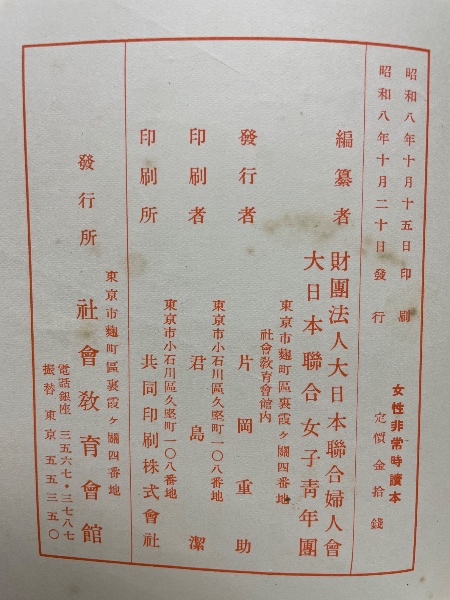 昭和八年十月十五日印刷
昭和八年十月二十日發行
女性非常時讀本
定價金拾錢
編纂者
財團法人大日本聯合婦人會
大日本聯合女子靑年團
東京市麹町區裏霞ヶ關四番地
社會敎育會館內
發行者
片岡重助
東京市小石川區久堅町一〇八番地
印刷者
君島潔
東京市小石川區久堅町一〇八番地
印刷所
共同印刷株式會社
東京市麹町區裏霞ヶ關四番地
發行所
社會敎育會館
電話銀座三五六七・三七八七
振替東京五五三五〇